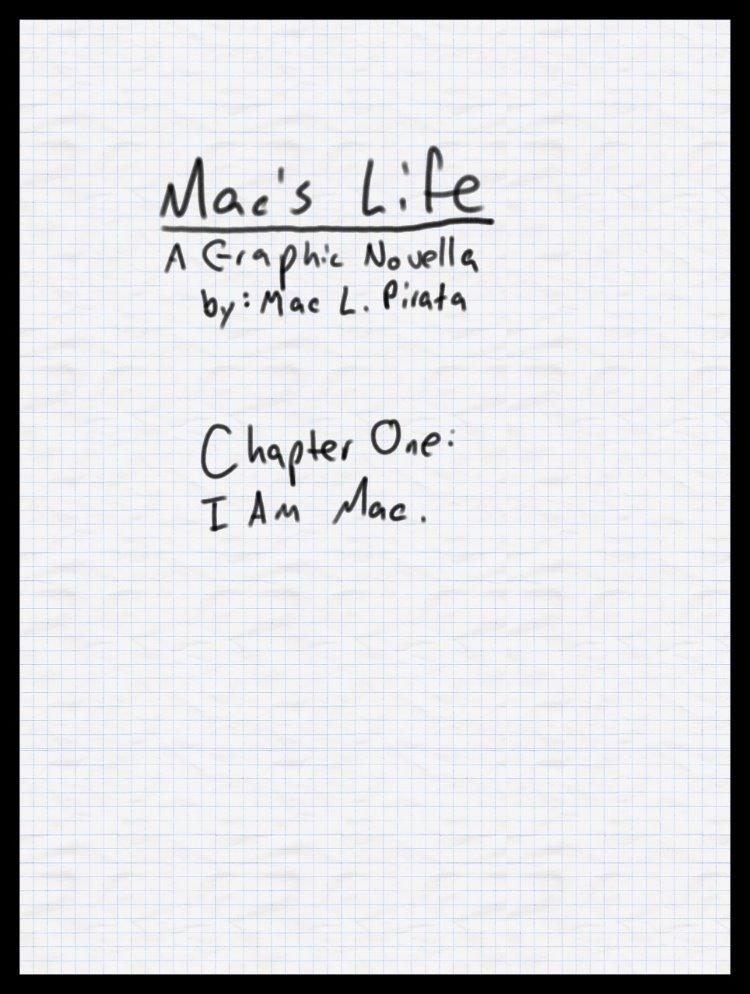 Mac's Life
A Graphic Novella
by: Mac L. Pirata
Chapter One:
I Am Mac.